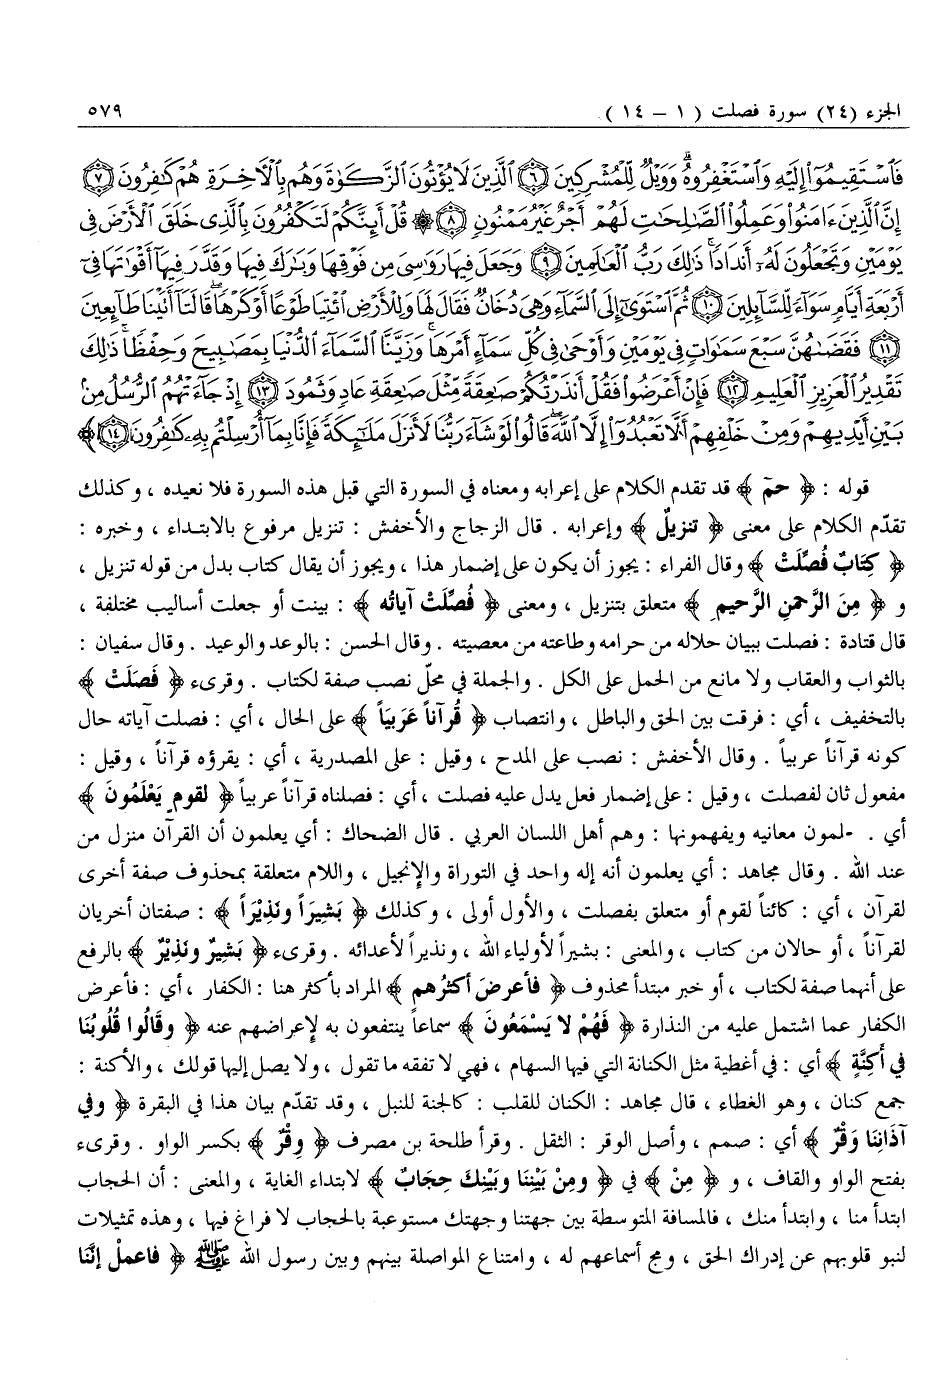 الجزء (٢٤) سورة فصلت ( ١ - ١٤ ) ٥٧٩
فَٱسْتَقِيمُوٓا۟ إِلَيْهِ وَٱسْتَغْفِرُوهُ ۗ وَوَيْلٌ لِّلْمُشْرِكِينَ ٦ ٱلَّذِينَ لَا يُؤْتُونَ ٱلزَّكَوٰةَ وَهُم بِٱلْـَٔاخِرَةِ هُمْ كَـٰفِرُونَ ٧
إِنَّ ٱلَّذِينَ ءَامَنُوا۟ وَعَمِلُوا۟ ٱلصَّـٰلِحَـٰتِ لَهُمْ أَجْرٌ غَيْرُ مَمْنُونٍ ٨ ۞ قُلْ أَئِنَّكُمْ لَتَكْفُرُونَ بِٱلَّذِى خَلَقَ ٱلْأَرْضَ فِى
يَوْمَيْنِ وَتَجْعَلُونَ لَهُۥٓ أَندَادًا ۚ ذَٰلِكَ رَبُّ ٱلْعَـٰلَمِينَ ٩ وَجَعَلَ فِيهَا رَوَٰسِىَ مِن فَوْقِهَا وَبَـٰرَكَ فِيهَا وَقَدَّرَ فِيهَآ أَقْوَٰتَهَا فِىٓ
أَرْبَعَةِ أَيَّامٍ سَوَآءً لِّلسَّآئِلِينَ ١٠ ثُمَّ ٱسْتَوَىٰٓ إِلَى ٱلسَّمَآءِ وَهِىَ دُخَانٌ فَقَالَ لَهَا وَلِلْأَرْضِ ٱئْتِيَا طَوْعًا أَوْ كَرْهًا قَالَتَآ أَتَيْنَا طَآئِعِينَ
١١ فَقَضَىٰهُنَّ سَبْعَ سَمَـٰوَاتٍ فِى يَوْمَيْنِ وَأَوْحَىٰ فِى كُلِّ سَمَآءٍ أَمْرَهَا ۚ وَزَيَّنَّا ٱلسَّمَآءَ ٱلدُّنْيَا بِمَصَـٰبِيحَ وَحِفْظًا ۚ ذَٰلِكَ
تَقْدِيرُ ٱلْعَزِيزِ ٱلْعَلِيمِ ١٢ فَإِنْ أَعْرَضُوا۟ فَقُلْ أَنذَرْتُكُمْ صَـٰعِقَةً مِّثْلَ صَـٰعِقَةِ عَادٍ وَثَمُودَ ١٣ إِذْ جَآءَتْهُمُ ٱلرُّسُلُ مِنۢ
بَيْنِ أَيْدِيهِمْ وَمِنْ خَلْفِهِمْ أَلَّا تَعْبُدُوٓا۟ إِلَّا ٱللَّهَ ۖ قَالُوا۟ لَوْ شَآءَ رَبُّنَا لَأَنزَلَ مَلَـٰٓئِكَةً فَإِنَّا بِمَآ أُرْسِلْتُم بِهِۦ كَـٰفِرُونَ ١٤ ﴾
قوله : ﴿ حمّ ﴾ قد تقدم الكلام على إعرابه ومعناه في السورة التي قبل هذه السورة فلا نعيده ، وكذلك
تقدّم الكلام على معنى ﴿ تنزيلٌ ﴾ وإعرابه . قال الزجاج والأخفش : تنزيل مرفوع بالابتداء ، وخبره :
﴿ كِتابٌ فُصِّلَتْ ﴾ وقال الفراء : يجوز أن يكون على إضمار هذا ، ويجوز أن يقال كتاب بدل من قوله تنزيل ،
و ﴿ مِنَ الرَّحمنِ الرَّحيمِ ﴾ متعلق بتنزيل ، ومعنى ﴿ فُصِّلَتْ آياتُه ﴾ : بينت أو جعلت أساليب مختلفة ،
قال قتادة : فصلت ببيان حلاله من حرامه وطاعته من معصيته . وقال الحسن : بالوعد والوعيد . وقال سفيان :
بالثواب والعقاب ولا مانع من الحمل على الكل . والجملة في محلّ نصب صفة لكتاب . وقرىء ﴿ فَصَلَتْ ﴾
بالتخفيف ، أي : فرقت بين الحق والباطل ، وانتصاب ﴿ قُرآناً عَرَبياً ﴾ على الحال ، أي : فصلت آياته حال
كونه قرآناً عربياً . وقال الأخفش : نصب على المدح ، وقيل : على المصدرية ، أي : يقرؤه قرآناً ، وقيل :
مفعول ثان لفصلت ، وقيل : على إضمار فعل يدل عليه فصلت ، أي : فصلناه قرآناً عربياً ﴿ لقومٍ يَعْلَمُونَ ﴾
أي . -لمون معانيه ويفهمونها : وهم أهل اللسان العربي . قال الضحاك : أي يعلمون أن القرآن منزل من
عند الله . وقال مجاهد : أي يعلمون أنه إله واحد في التوراة والإنجيل ، واللام متعلقة بمحذوف صفة أخرى
لقرآن ، أي : كائناً لقوم أو متعلق بفصلت ، والأول أولى ، وكذلك ﴿ بَشيرَاً ونَذِيْرَاً ﴾ : صفتان أخريان
لقرآناً ، أو حالان من كتاب ، والمعنى : بشيراً لأولياء الله ، ونذيراً لأعدائه . وقرىء ﴿ بَشيرٌ ونَذِيْرٌ ﴾ بالرفع
على أنهما صفة لكتاب ، أو خبر مبتدأ محذوف ﴿ فأعرضَ أكثرُهم ﴾ المراد بأكثر هنا : الكفار ، أي : فأعرض
الكفار عما اشتمل عليه من النذارة ﴿ فَهُمْ لا يَسْمَعُونَ ﴾ سماعاً ينتفعون به لإعراضهم عنه ﴿ وقَالُوا قُلُوبُنَا
في أَكِنَّةٍ ﴾ أي : في أغطية مثل الكنانة التي فيها السهام ، فهي لا تفقه ما تقول ، ولا يصل إليها قولك ، والأكنة :
جمع كنان ، وهو الغطاء ، قال مجاهد : الكنان للقلب : كالجنة للنبل ، وقد تقدّم بيان هذا في البقرة ﴿ وفي
آذَانِنَا وَقْرٌ ﴾ أي : صمم ، وأصل الوقر : الثقل . وقرأ طلحة بن مصرف ﴿ وِقْرٌ ﴾ بكسر الواو . وقرىء
بفتح الواو والقاف ، و ﴿ مِنْ ﴾ في ﴿ ومِنْ بَيْنِنَا وبَيْنِكَ حِجَابٌ ﴾ لابتداء الغاية ، والمعنى : أن الحجاب
ابتدأ منا ، وابتدأ منك ، فالمسافة المتوسطة بين جهتنا وجهتك مستوعبة بالحجاب لا فراغ فيها ، وهذه تمثيلات
لنبو قلوبهم عن إدراك الحق ، ومج أسماعهم له ، وامتناع المواصلة بينهم وبين رسول الله ﷺ ﴿ فاعملْ إنَّنَا